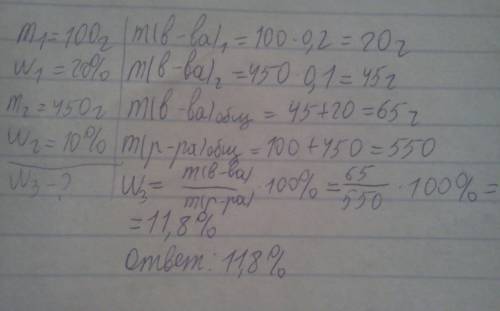 m₁=100г
w₁=20%
m₂=450г
w₂=10%
w₃-?
m(в-ва)₁=100·0,2=20г
m(в-ва)₂=450·0,1=45г
m(в-ва)общ=45+20=65г
m(р-ра)общ=100+450=550
w₃=m(в-ва)/m(р-ра)·100%=65/550·100%=
=11,8%
Ответ: 11,8%